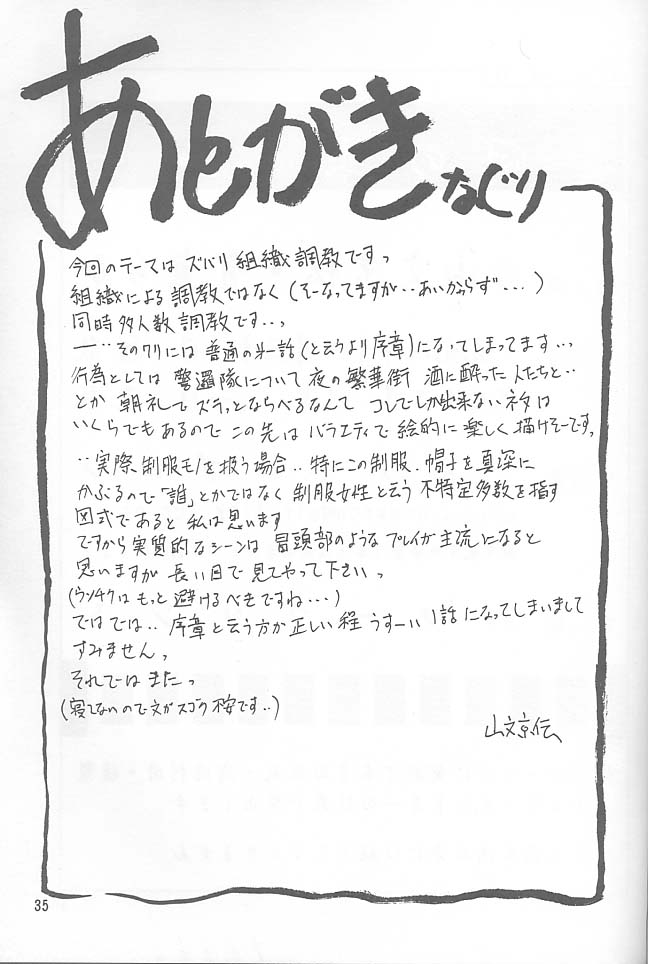 あとがき なぐり
今回のテーマは ズバリ 組織調教ですっ
組織による 調教ではなく (そーなってますが‥あいかわらず‥‥)
同時多人数調教です‥っ
一‥そのワリには 普通の第一話(と云うより序章)になってしまってます‥っ
行為としては 警邏隊について 夜の繁華街 酒に酔った人たちと‥
とか 朝礼で ズラッとならべるなんて コレでしか出来ないネタは
いくらでもあるので この先は バラエティで 絵的に 楽しく 描けそーですっ
‥実際、制服モノを扱う場合‥特にこの制服、帽子を真深に
かぶるので「誰」とかではなく 制服女性と云う 不特定多数を指す
図式であると 私は思います
ですから実質的なシーンは 冒頭部のような プレイが主流になると
思いますが 長い目で 見てやって下さいっ
(ウンチクは もっと 避けるべきですね‥‥)
ではでは‥ 序章と云う方が 正しい程 うすーい 1話になってしまいまして
すみませんっ
それでは またっ
(寝てないので 文が スゴク 不安です‥)
山文京伝
35